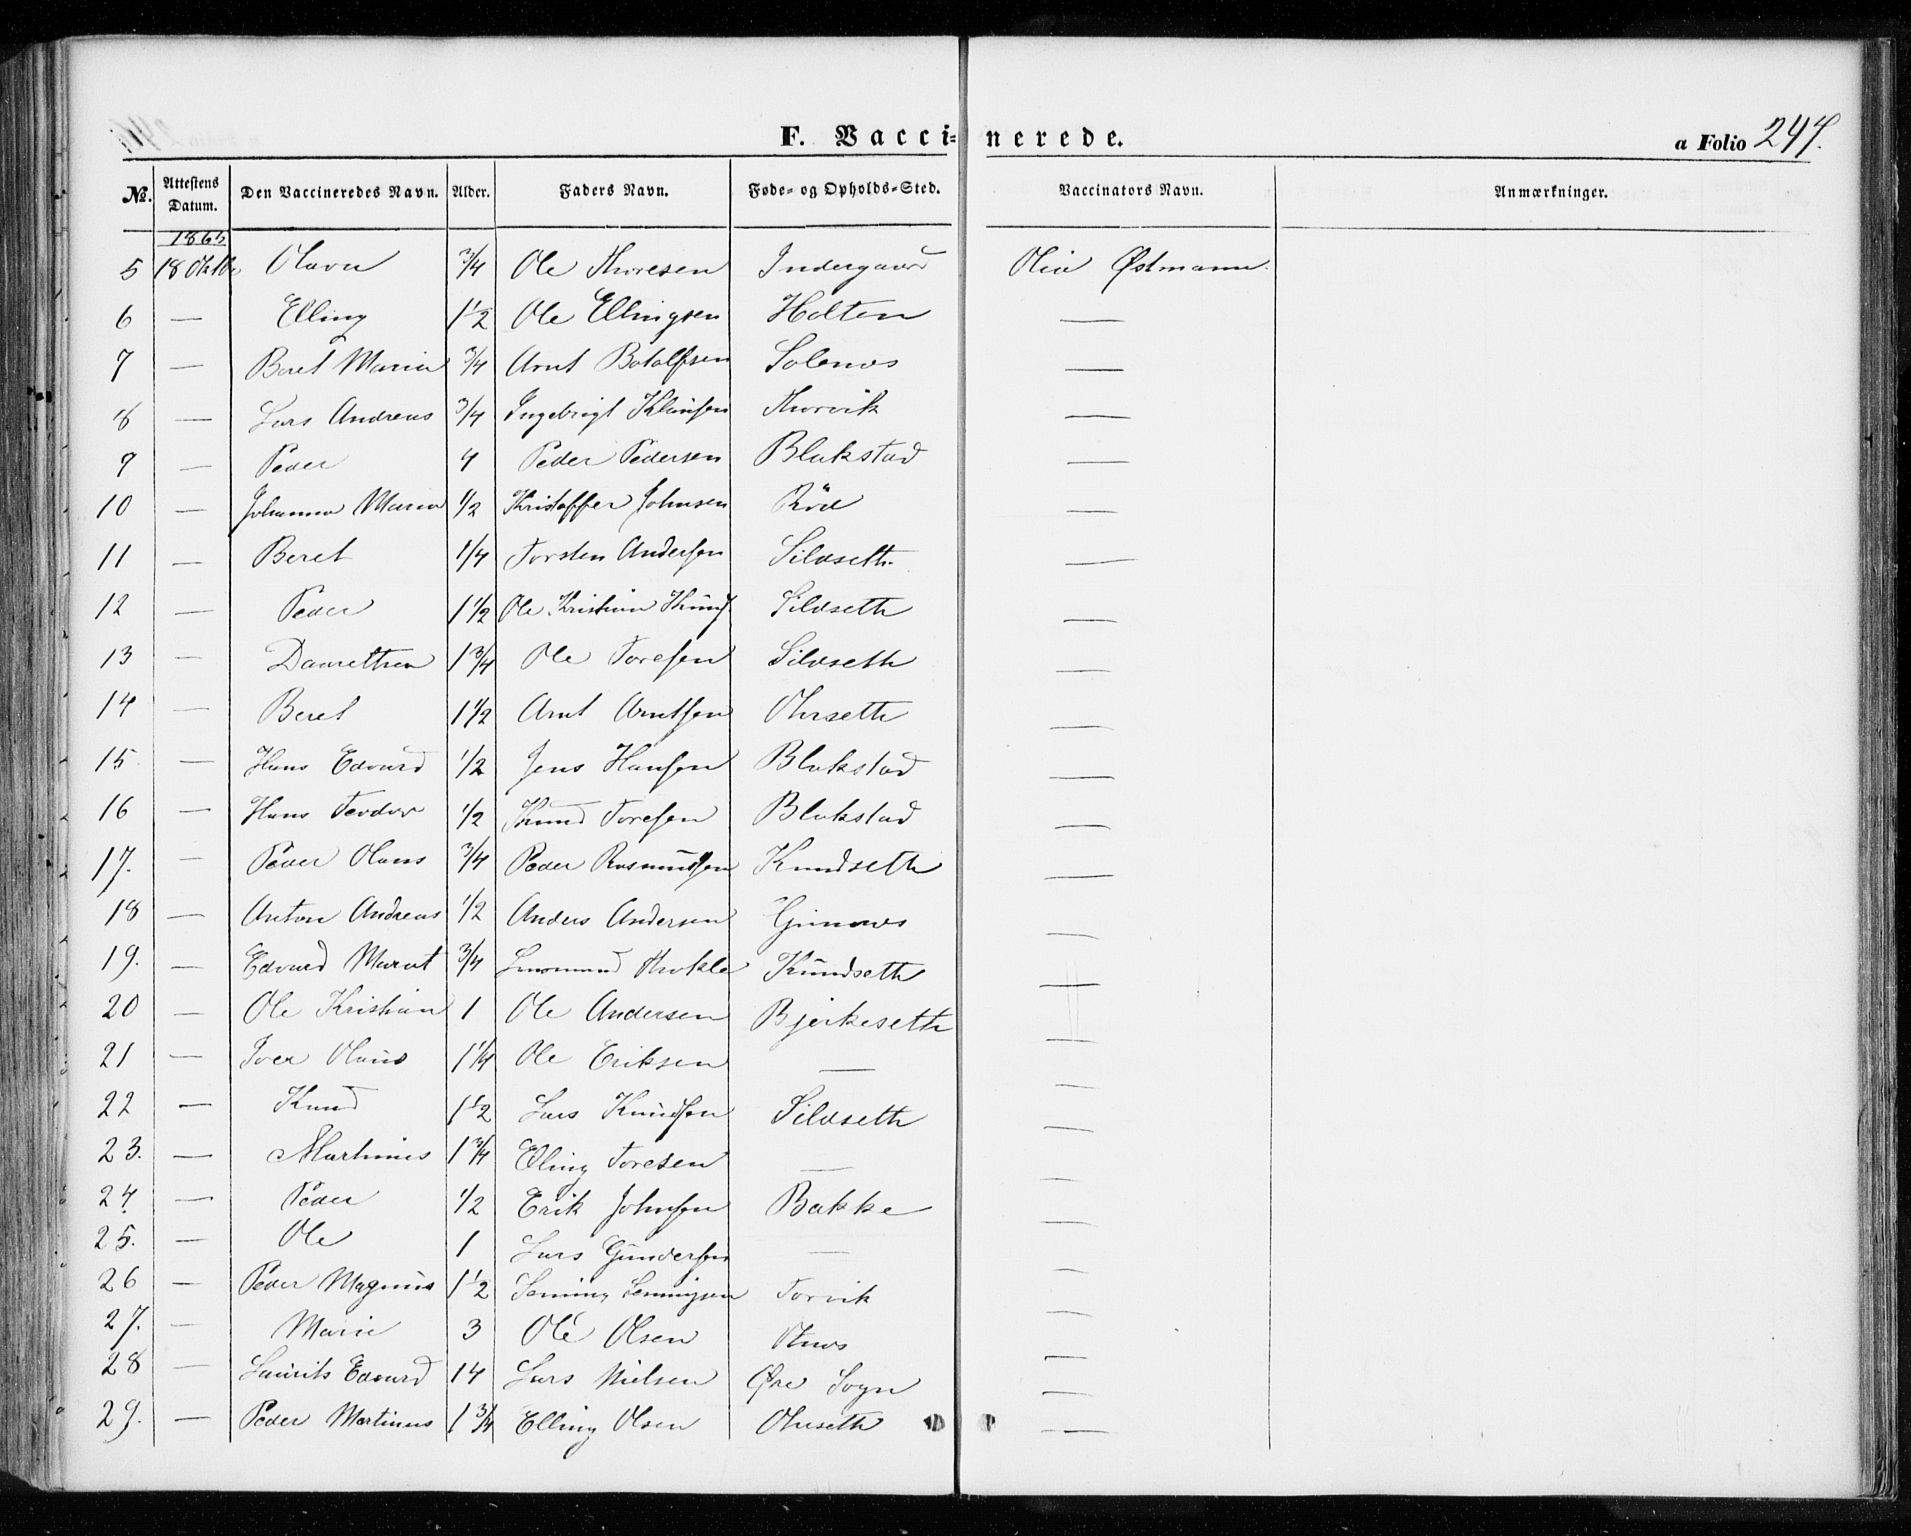 F. Vaccinerede.
a Folio 247.
No. Attestens Datum. Den Vaccineredes Navn. Alder. Faders Navn. Føde- og Opholds-Sted. Vaccinators Navn. Anmærkninger.
1865
5 18 Oktbr Olava 3/4 Ole Thoresen Indergaard Olia Østmann.
6 — Elling 1 1/2 Ole Ellingsen Holten —
7 — Beret Maria 3/4 Arnt Botolfsen Solenes —
8 — Lars Andreas 3/4 Ingebrigt Thorvik —
9 — Peder 4 Peder Pedersen Blakstad —
10 — Johanna Maria 1/2 Kristoffer Johnsen Röd —
11 — Beret 1/4 Torsten Andersen Silseth —
12 — Peder 1 1/2 Ole Kristian Knuds Silseth —
13 — 1 3/4 Ole Toresen Silseth —
14 — Beret 1 1/2 Arnt Arntsen Ohrseth —
15 — Hans Edvard 1/2 Jens Hansen Blakstad —
16 — Hans Teodor 1/2 Knud Toresen Blakstad —
17. — Peder Olaus 3/4 Peder Rasmussen Knudseth —
18 — Anton Andreas 1/2 Anders Andersen Gimnes —
19. — Edvard 3/4 Knudseth —
20 — Ole Kristian 1 Ole Andersen Bjerkeseth —
21 — Iver Olaus 1 1/4 Ole Eriksen — —
22 — Knud 1 1/2 Lars Knudsen Silseth —
23. — Martinus 1 3/4 Elling Toresen — —
24. — Peder 1/2 Erik Johnsen Bakke —
25. — Ole 1 Lars Gundersen — —
26 — Peder Magnus 1 1/2 Torvik —
27. — Marie 3 Ole Olsen —
28 — Laurits Edvard 14 Lars Nielsen Øre Sogn —
29. — Peder Martinus 1 3/4 Elling Olsen Ohrseth —